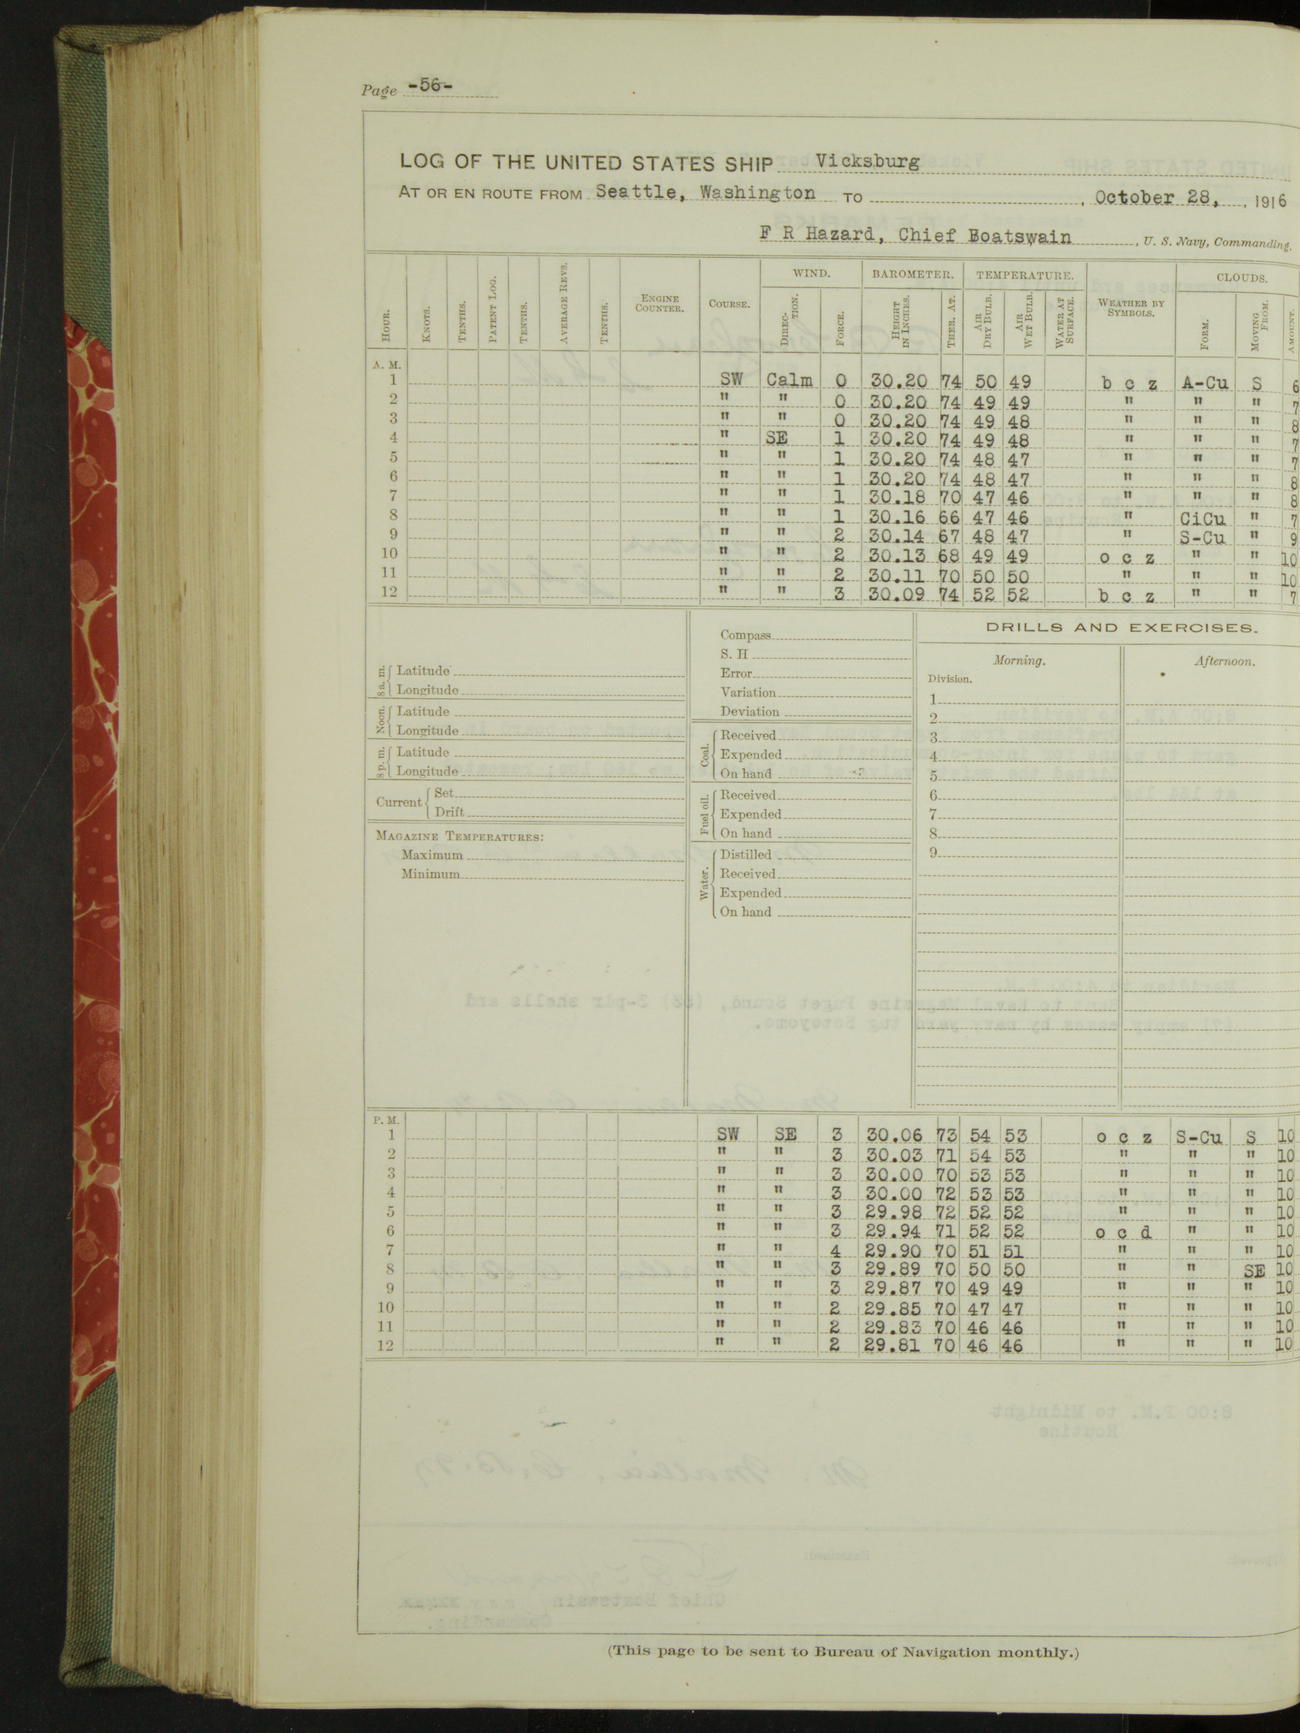 Page -56-
LOG OF THE UNITED STATES SHIP Vicksburg
AT OR EN ROUTE FROM Seattle, Washington TO , October 28, , 1916
F R Hazard, Chief Boatswain , U. S. Navy, Commanding.
HOUR. KNOTS. TENTHS. PATENT LOG. TENTHS. AVERAGE REVS. TENTHS. ENGINE COUNTER. COURSE. WIND. DIRECTION. FORCE. BAROMETER. HEIGHT IN INCHES. THER. AT. TEMPERATURE. AIR DRY BULB. AIR WET BULB. WATER AT SURFACE. WEATHER BY SYMBOLS. CLOUDS. FORM. MOVING FROM. AMOUNT.
A. M.
1 SW Calm 0 30.20 74 50 49 b c z A-Cu S 6
2 " " 0 30.20 74 49 49 " " " 7
3 " " 0 30.20 74 49 48 " " " 8
4 " SE 1 30.20 74 49 48 " " " 7
5 " " 1 30.20 74 48 47 " " " 7
6 " " 1 30.20 74 48 47 " " " 8
7 " " 1 30.18 70 47 46 " " " 8
8 " " 1 30.16 66 47 46 " CiCu " 7
9 " " 2 30.14 67 48 47 " S-Cu " 9
10 " " 2 30.13 68 49 49 o c z " " 10
11 " " 2 30.11 70 50 50 " " " 10
12 " " 3 30.09 74 52 52 b c z " " 7
8 a. m. Latitude
Longitude
Noon. Latitude
Longitude
8 p. m. Latitude
Longitude
Current Set
Drift
MAGAZINE TEMPERATURES:
Maximum
Minimum
Compass
S. H
Error
Variation
Deviation
Coal. Received
Expended
On hand
Fuel oil. Received
Expended
On hand
Water. Distilled
Received
Expended
On hand
DRILLS AND EXERCISES.
Morning. Afternoon.
Division.
1
2
3
4
5
6
7
8
9
P. M.
1 SW SE 3 30.06 73 54 53 o c z S-Cu S 10
2 " " 3 30.03 71 54 53 " " " 10
3 " " 3 30.00 70 53 53 " " " 10
4 " " 3 30.00 72 53 53 " " " 10
5 " " 3 29.98 72 52 52 " " " 10
6 " " 3 29.94 71 52 52 o c d " " 10
7 " " 4 29.90 70 51 51 " " " 10
8 " " 3 29.89 70 50 50 " " SE 10
9 " " 3 29.87 70 49 49 " " " 10
10 " " 2 29.85 70 47 47 " " " 10
11 " " 2 29.83 70 46 46 " " " 10
12 " " 2 29.81 70 46 46 " " " 10
(This page to be sent to Bureau of Navigation monthly.)